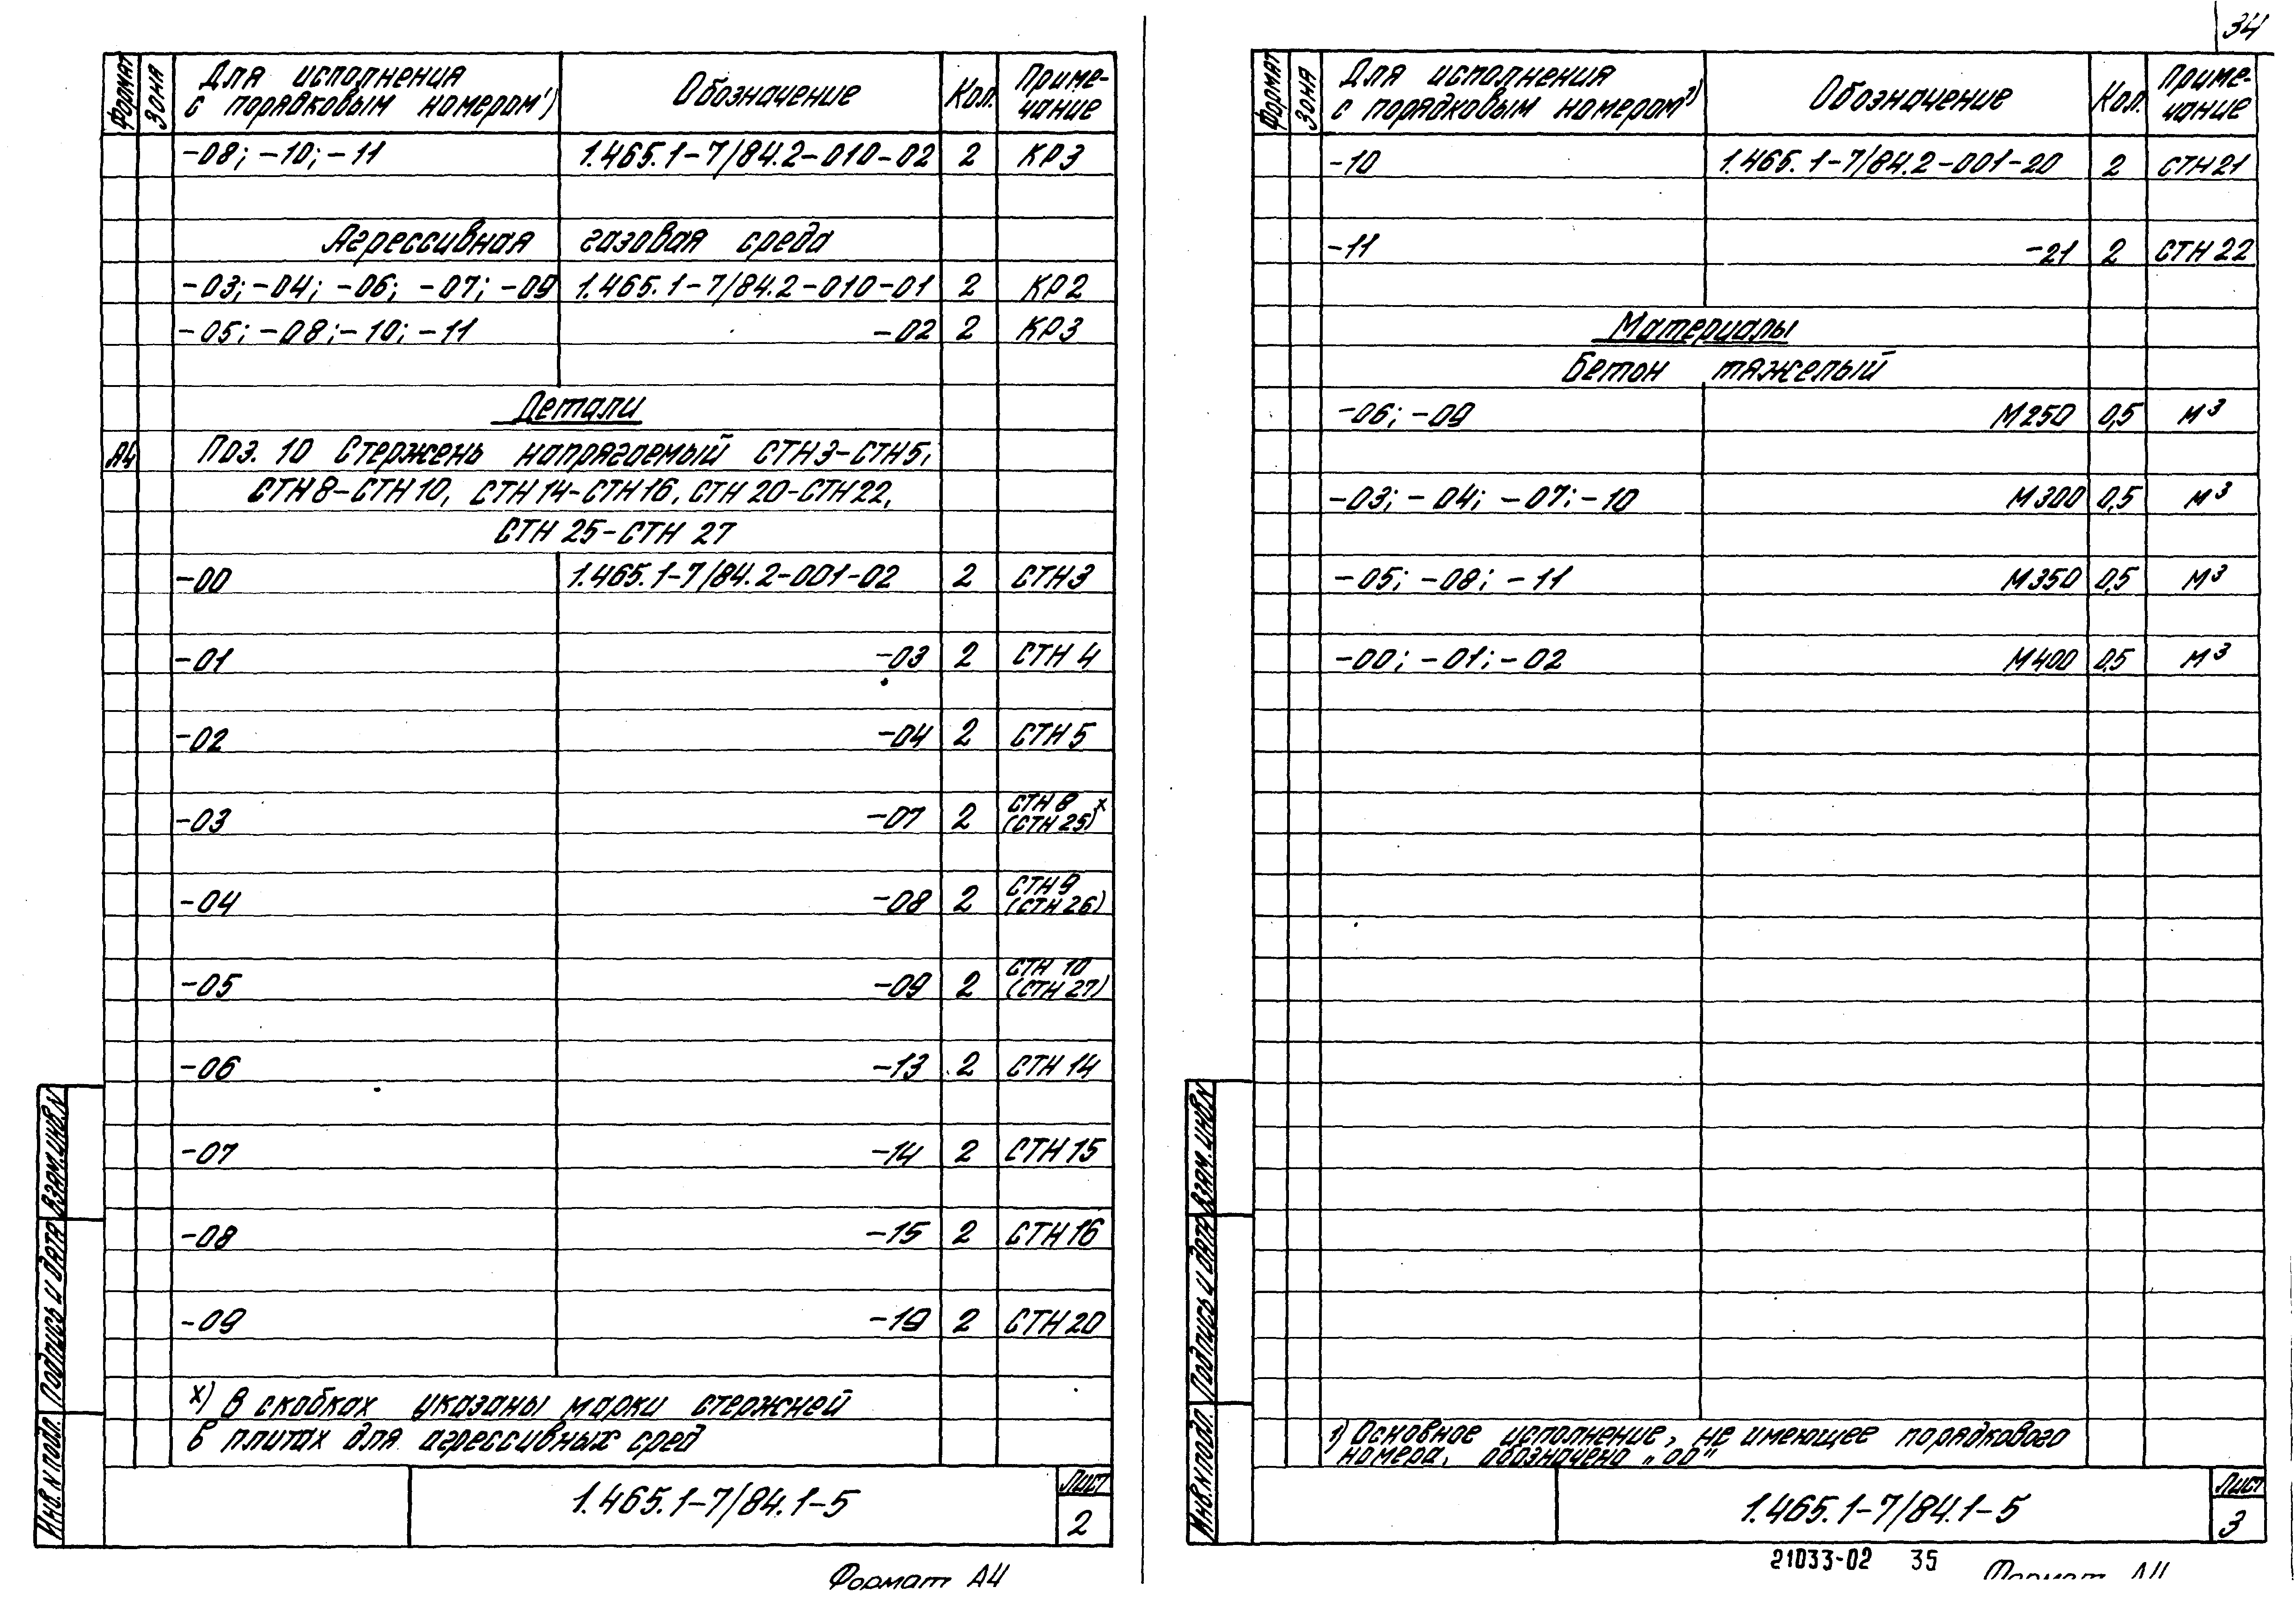 Формат
Зона
Для исполнения
с порядковым номером¹)
Обозначение
Кол.
Приме-
чание
-08; -10; -11 1.465.1-7/84.2-010-02 2 КР3
Агрессивная газовая среда
-03; -04; -06; -07; -09 1.465.1-7/84.2-010-01 2 КР2
-05; -08; -10; -11 -02 2 КР3
Детали
А4 Поз. 10 Стержень напрягаемый СТН3-СТН5,
СТН8-СТН10, СТН14-СТН16, СТН20-СТН22,
СТН 25-СТН 27
-00 1.465.1-7/84.2-001-02 2 СТН3
-01 -03 2 СТН 4
-02 -04 2 СТН 5
-03 -07 2 СТН 8 (СТН 25)ˣ
-04 -08 2 СТН 9 (СТН 26)
-05 -09 2 СТН 10 (СТН 27)
-06 -13 2 СТН 14
-07 -14 2 СТН 15
-08 -15 2 СТН 16
-09 -19 2 СТН 20
х) В скобках указаны марки стержней
в плитах для агрессивных сред
Инв. N подл. Подпись и дата Взам. инв. N
1.465.1-7/84.1-5
Лист
2
Формат А4
34
Формат
Зона
Для исполнения
с порядковым номером¹)
Обозначение
Кол.
Приме-
чание
-10 1.465.1-7/84.2-001-20 2 СТН 21
-11 -21 2 СТН 22
Материалы
Бетон тяжелый
-06; -09 М250 0,5 м³
-03; -04; -07; -10 М300 0,5 м³
-05; -08; -11 М350 0,5 м³
-00; -01; -02 М400 0,5 м³
1) Основное исполнение, не имеющее порядкового
номера, обозначено „00"
Инв. N подл. Подпись и дата Взам. инв. N
1.465.1-7/84.1-5
Лист
3
21033-02 35
Формат А4